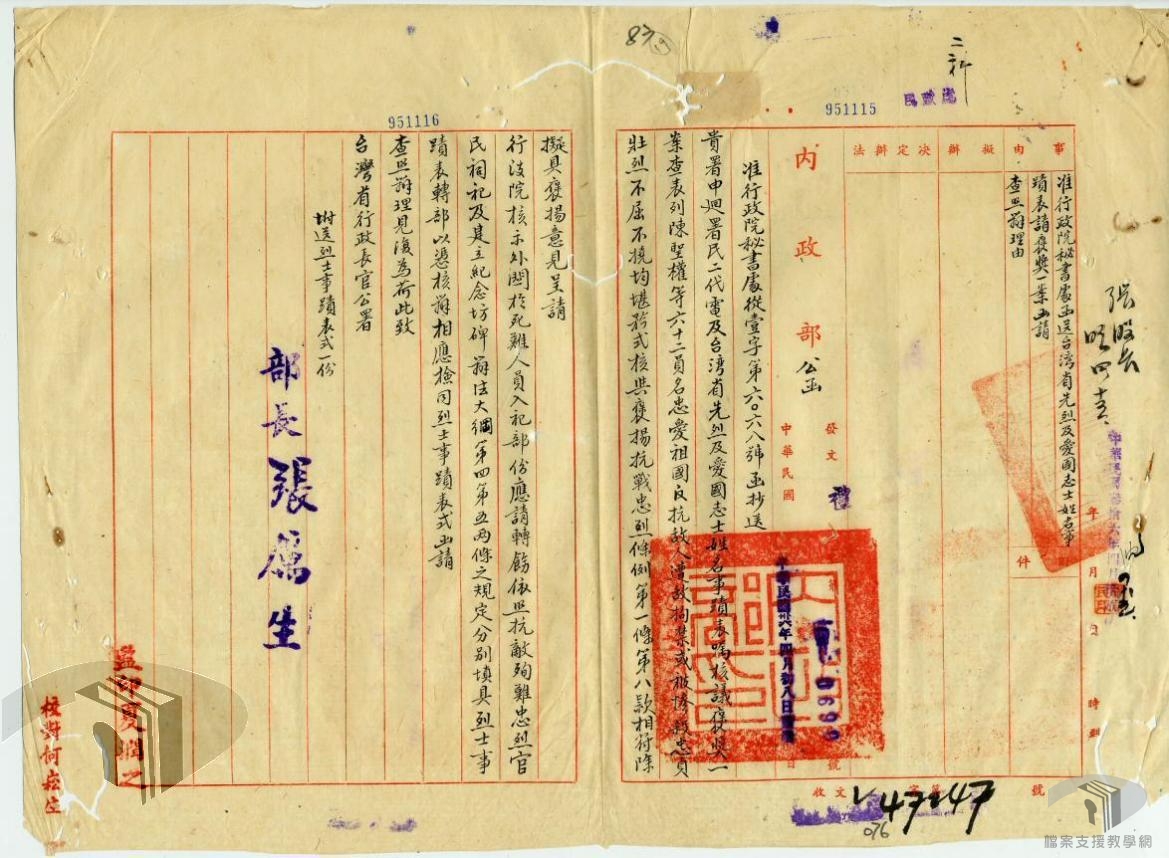 二科
民政處
951115
951116
83
19
事由
擬辦
決定辦法
件
准行政院秘書處函送台湾省先烈及愛國志士姓名事
蹟表請褒獎一案函請
查照辦理由
年
月
時到
號
收文
47247
內政部公函
發文
禮
中華民國
中華民國卅六年四月初八日
准行政院秘書處從壹字第六〇六八號函抄送
貴署申迴署民二代電及台湾省先烈及愛國志士姓名事蹟表囑核議褒獎一
案查表列陳聖權等六十二員名忠愛祖國反抗敵人遭敵拘禁或被慘殺忠貞
壯烈不屈不撓均堪矜式核與褒揚抗戰忠烈條例第一條第八款相符除
擬具褒揚意見呈請
行政院核示外關於死難人員入祀部份應請轉飭依照抗敵殉難忠烈官
民祠祀及建立紀念坊碑辦法大綱第四第五兩條之規定分別填具烈士事
蹟表轉部以憑核辦相應檢同烈士事蹟表式函請
查照辦理見復為荷此致
台灣省行政長官公署
附送烈士事蹟表式一份
部長張厲生
監印夏
校對何崧生
檔案支援教學網